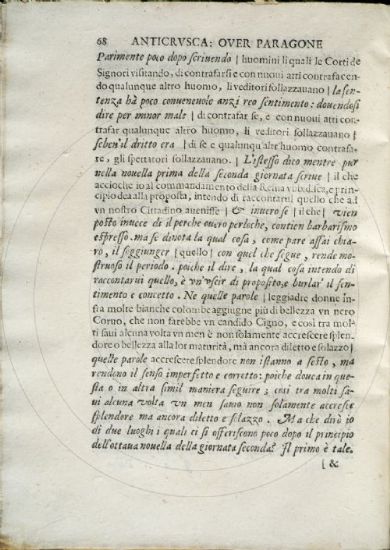 68 ANTICRVSCA; OVER PARAGONE
Parimente poco dopo scriuendo | huomini li quali le Corti de
Signori visitando, di contrafarsi e con nuoui atti contrafacen
do qualunque altro huomo, li veditori sollazzauano | la sen-
tenza hà poco conueneuole anzi reo sentimento: douendosi
dire per minor male | di contrafar se, e con nuoui atti con-
trafar qualunque altro huomo, li veditori sollazzauano |
seben'il dritto era | di se e qualunqu' altr' huomo contrafa-
re, gli spettatori sollazzauano. L'istesso dico mentre pur
nella nouella prima della seconda giornata scriue | il che
accioche io al commandamento della Reina vbidisca, e prin-
cipio dea alla proposta, intendo di raccontarui quello che a
vn nostro Cittadino auenisse | & inuero se | il che | vien
posto inuece di il perche ouero perloche, contien barbarismo
espresso. ma se dinota la qual cosa, come pare assai chia-
ro, il soggiunger | quello | con quel che segue, rende mo-
struoso il periodo. poiche il dire, la qual cosa intendo di
raccontarui quello, è vn'vscir di proposito, e burlar' il sen-
timento e concetto. Ne quelle parole | leggiadre donne in-
fra molte bianche colombe aggiugne più di bellezza vn nero
Coruo, che non farebbe vn candido Cigno, e così tra mol-
ti saui alcuna volta vn men è non solamente accrescere splen-
dore o bellezza alla lor maturità, mà ancora diletto e solazzo |
quelle parole accrescere splendore non istanno a sesto, ma
rendono il senso imperfetto e corretto: poiche douea in que-
sta o in altra simil maniera seguire; così tra molti sa-
ui alcuna volta vn men sauio non solamente accresce
splendore ma ancora diletto e solazzo. Ma che dirò io
di due luoghi i quali ci si offeriscono poco dopo il principio
dell'ottaua nouella della giornata seconda? Il primo è tale.
| &